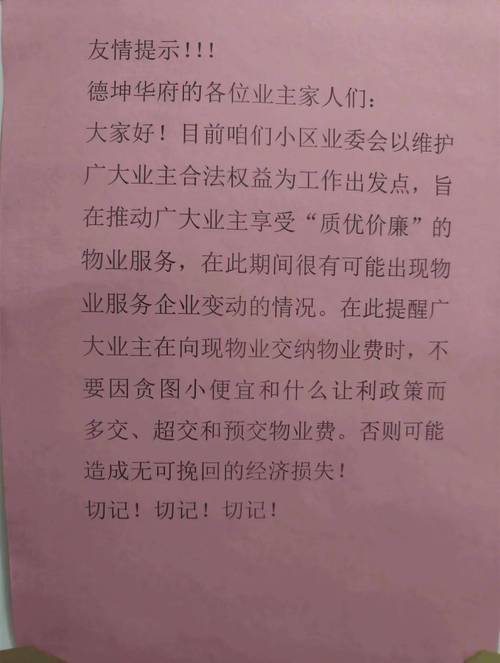 友情提示!!!
德坤华府的各位业主家人们：
大家好！目前咱们小区业委会以维护
广大业主合法权益为工作出发点，旨
在推动广大业主享受“质优价廉”的
物业服务，在此期间很有可能出现物
业服务企业变动的情况。在此提醒广
大业主在向现物业交纳物业费时，不
要因贪图小便宜和什么让利政策而
多交、超交和预交物业费。否则可能
造成无可挽回的经济损失！
切记！切记！切记！